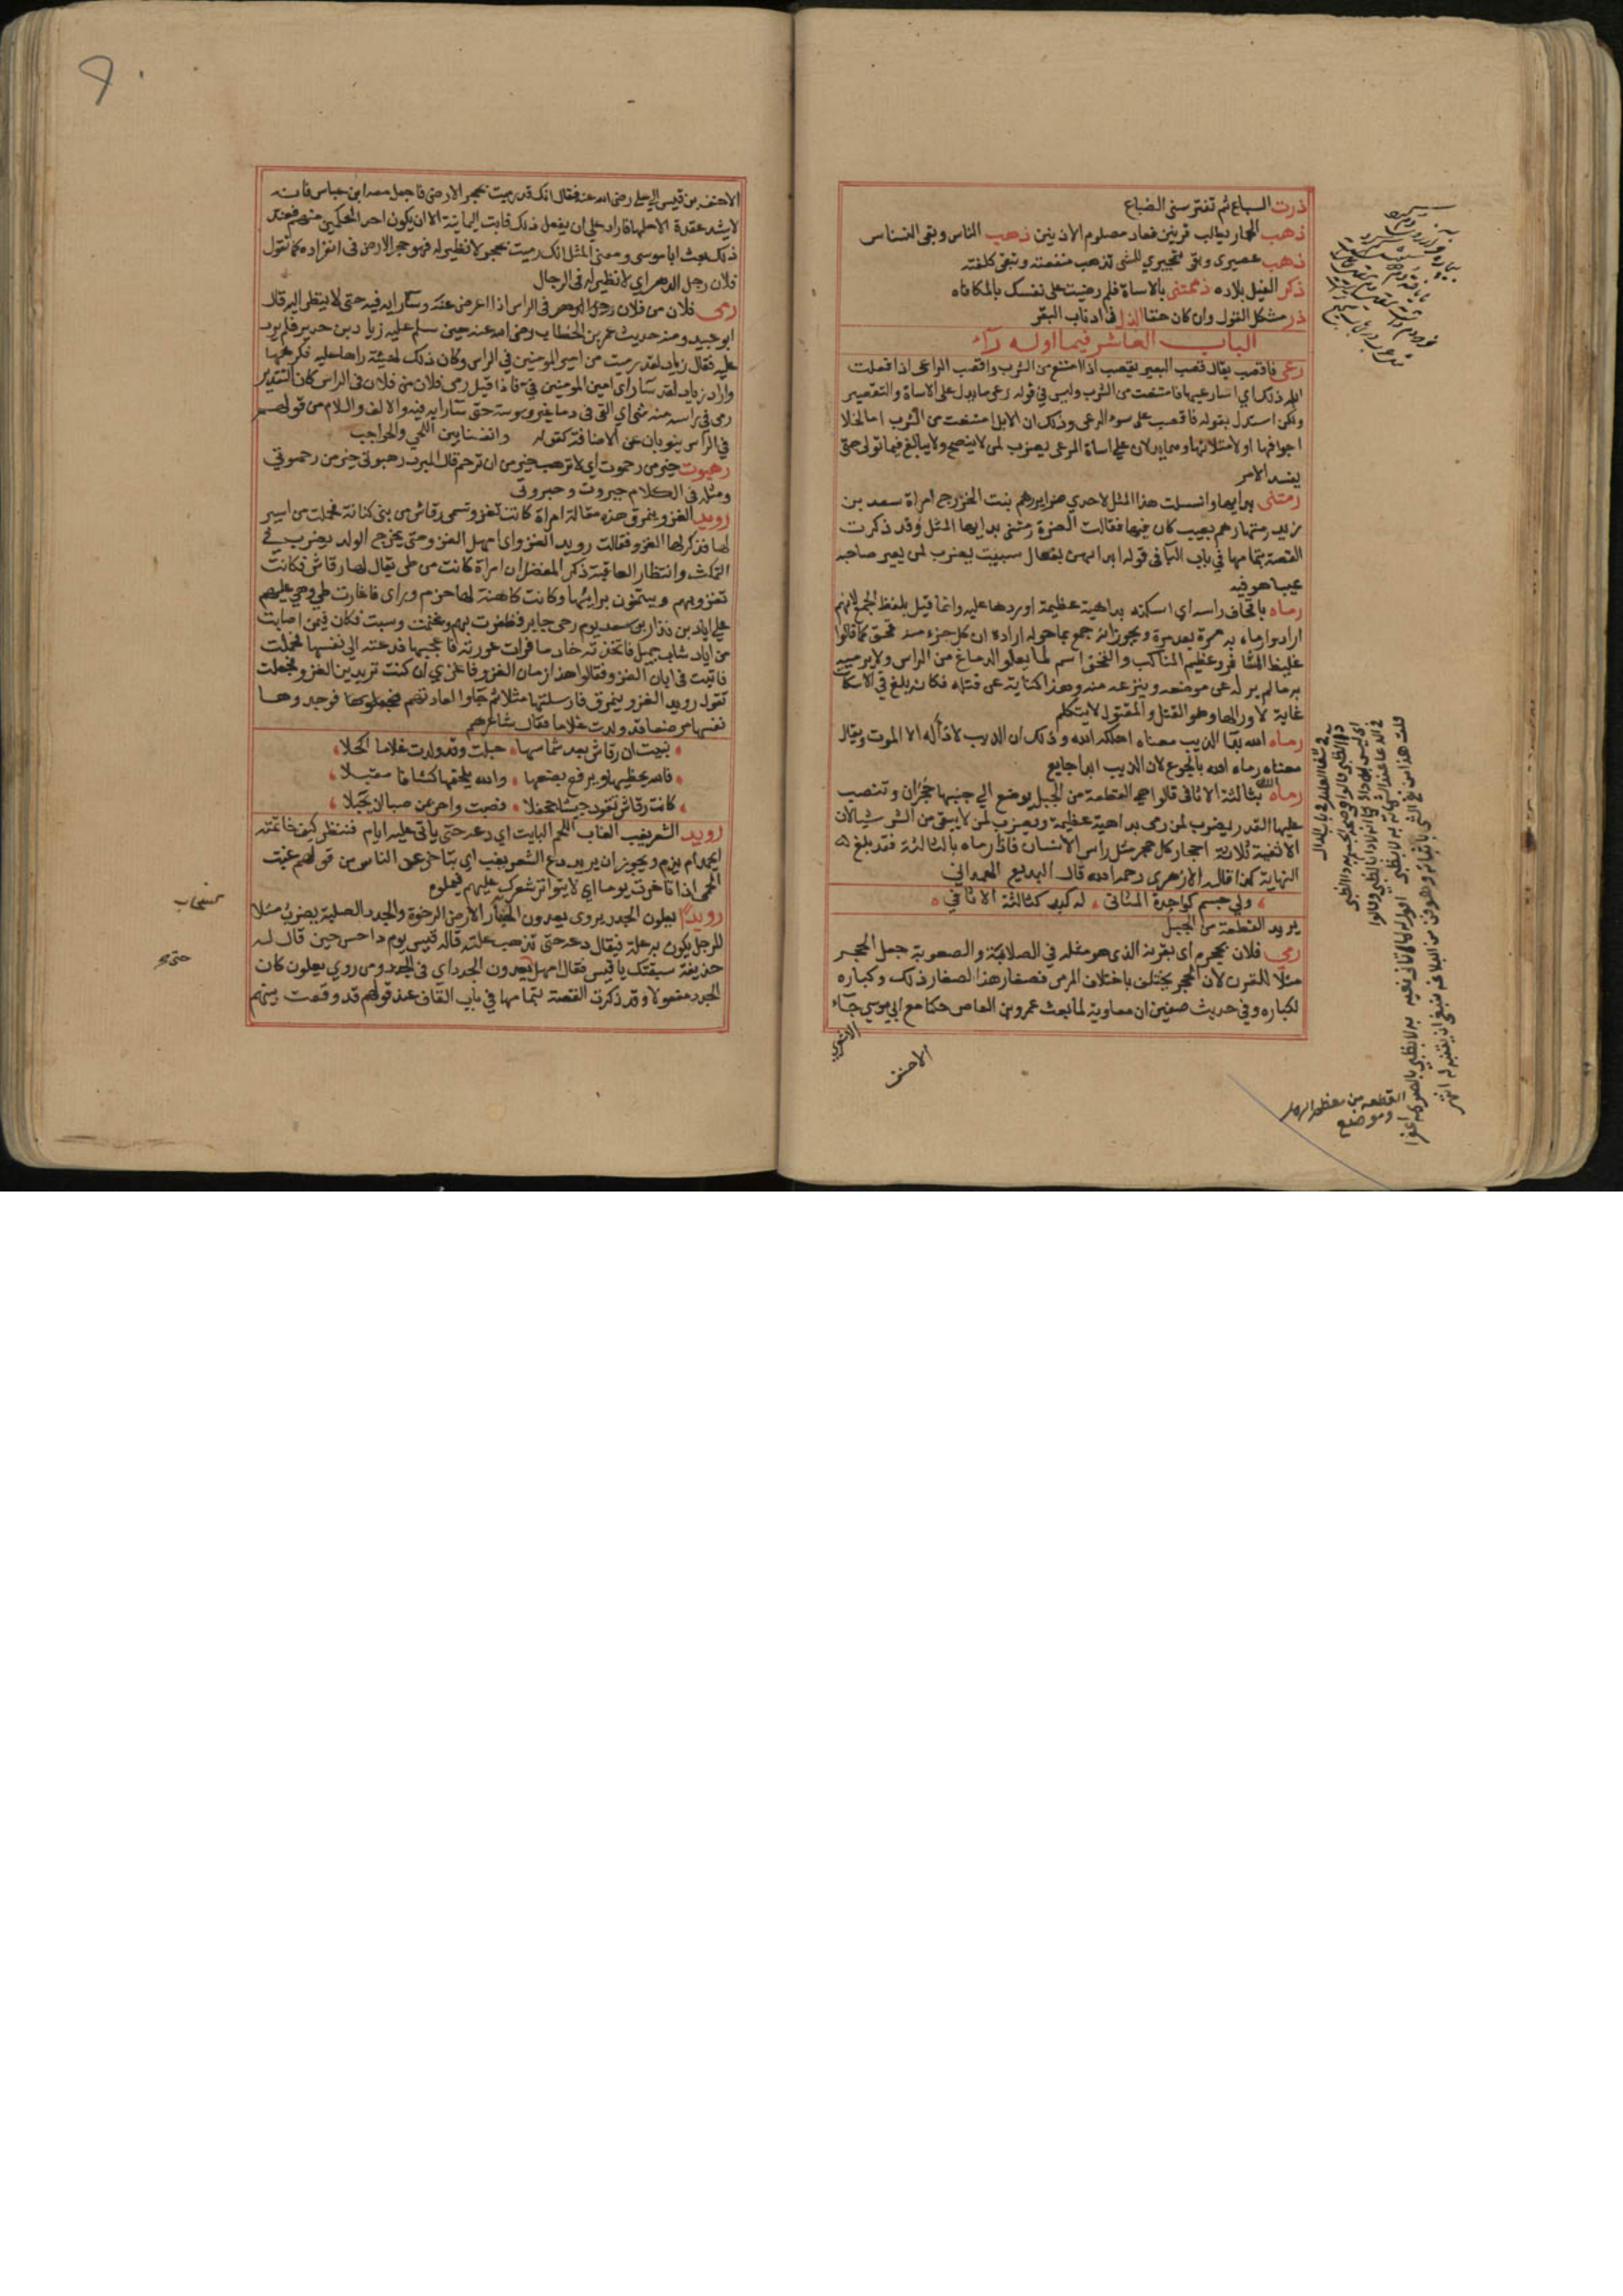 ذرت السباع ثم تفترسني الضباع
ذهب الحمار يطلب قرنين فعاد مصلوم الاذنين ذهب الناس وبقي النسناس
ذهب عصيري وبقي ثجيري للشي تذهب منفعته وتبقي كلفته
ذكر الفيل بلاده ذممتني بالاساة فلم رضيت علي نفسك بالمكافاه
ذر مشكل القول وان كان حقا الذل في اذناب البقر
الباب العاشر فيما اوله راء
رعى فاقصب يقال قصب البعير يقصب اذا امتنع من الشرب واقصب الراعي اذا فعلت
ابله ذلك اي اسار عيها فامتنعت من الشرب وليس في قوله رعى ما يدل على الاساة والتقصير
ولكن استدل بقوله فاقصب على سوء الرعي وذلك ان الابل امتنعت من الشرب اما لخلا
اجوافها او لامتلائها وهما يدلان علي اساة الرعي يضرب لمن لا ينصح ولا يبالغ فيما تولي حتى
يفسد الامر
رمتنى بدايها وانسلت هذا المثل لاحدي ضراير رهم بنت الخزرج امراة سعد بن
زيد رمتها رهم بعيب كان فيها فقالت الضرة رمتني بدايها المثل وقد ذكرت
القصة بتمامها في باب البا في قوله ابدايهن بعفال سبيت يضرب لمن يعير صاحبه
عيبا هو فيه
رماه باقحاف راسه اي اسكته بداهية عظيمة اوردها عليه وانما قيل بلفظ الجمع لانهم
ارادوا رماه به مرة بعد مرة ويجوز انه جمع بما حوله ارادة ان كل جزء منه قحف كما قالوا
غليظ المشافر وعظيم المناكب والقحف اسم لما يعلو الدماغ من الراس ولا يرميه
به ما لم يزله عن موضعه وينزعه منه وهذا كناية عن قتله فكانه بلغ في الاسكات
غاية لا وراها وهو القتل والمقتول لا يتكلم
رماه الله بدا الذيب معناه اهلكه الله وذلك ان الذيب لا دأ له الا الموت ويقال
معناه رماه الله بالجوع لان الذيب ابدا جايع
رماه الله بثالثة الاثافي قالوا هي القطعة من الجبل يوضع الي جنبها حجران وتنصب
عليها القدر يضرب لمن رمى بداهية عظيمة ويضرب لمن لا يبقي من الشر شيا لان
الاثفية ثلاثة احجار كل حجر مثل راس الانسان فاذا رماه بالثالثة فقد بلغ
النهاية كذا قاله الازهري رحمه الله قال البديع الهمداني
ولي جسم كواحدة المثاني ، له كبد كثالثة الاثافي
يريد القطعة من الجبل
رمي فلان بحجره اي بقرنه الذي هو مثله في الصلابة والصعوبة جعل الحجر
مثلا للقرن لان الحجر يختلف باختلاف المرمى فصغار هذا لصغار ذلك وكباره
لكباره وفي حديث صفين ان معاوية لما بعث عمرو بن العاص حكما مع ابي موسي جاء
الاشعري
الاحنف
القطعه من معظم الرمل
وموضع
الاحنف بن قيس الي علي رضي الله عنه فقال انك قد رميت بحجر الارض فاجعل معه ابن عباس فانه
لا يشد عقدة الا حلها فاراد علي ان يفعل ذلك فابت اليمانية الا ان يكون احد الحكمين منهم فعند
ذلك بعث ابا موسى ومعنى المثل انك رميت بحجر لا نظير له فهو حجر الارض في انفراده كما تقول
فلان رجل الدهر اي لا نظير له في الرجال
رمى فلان من فلان في الراس اذا اعرض عنه وساء رايه فيه حتى لا ينظر اليه قال
ابو عبيد ومنه حديث عمر بن الخطاب رضي الله عنه حين سلم عليه زياد بن حدير فلم يرد
عليه فقال زياد لقد رميت من امير المومنين في الراس وكان ذلك لهيئة راها عليه فكرهها
واراد زياد لقد ساء راي امير المومنين في فاذا قيل رمى فلان من فلان في الراس كان التقدير
رمى في راسه منه شي اي القي في دماغه وسوسة حتى ساء رايه فيه والالف واللام من قولهم
في الراس ينوبان عن الاضافة كقوله وانفنا بين اللحي والحواجب
رهبوت خير من رحموت اي لان ترهب خير من ان ترحم قال المبرد رهبوتي خير من رحموتي
ومثله في الكلام جبروت وجبروتى
رويد الغزو ينمرق هذه مقالة امراة كانت تغزو تسمى رقاش من بني كنانة فحملت من اسير
لها فذكر لها الغزو فقالت رويد الغزو اي امهل الغزو حتى يخرج الولد يضرب في
التمكث وانتظار العاقبة ذكر المفضل ان امراة كانت من طي يقال لها رقاش فكانت
تغزو بهم ويتيمنون برايها وكانت كاهنة لها حزم وراى فاغارت طي وهي عليهم
على اياد بن نزار بن معد يوم رحى جابر فظفرت بهم وغنمت وسبت فكان فيمن اصابت
من اياد شاب جميل فاتخذته خادما فرات عورته فاعجبها فدعته الى نفسها فحملت
فاتيت في ابان الغزو فقالوا هذا زمان الغزو فاغزي ان كنت تريدين الغزو فجعلت
تقول رويد الغزو ينمرق فارسلتها مثلا ثم جاوا لعادتهم فوجدوها
نفسا مرضعا قد ولدت غلاما فقال شاعرهم
نبيت ان رقاش بعد شماسها ، حبلت وقد ولدت غلاما اكحلا
فالله يحظيها ويرفع بضعها ، والله يلحقها كشافا مقبلا
كانت رقاش تقود جيشا جحفلا ، فصبت واحر بمن صبا ان يحبلا
رويد الشعر يغب الغاب اللحم البايت اي دعه حتى ياتي عليه ايام فتنظر كيف خاتمته
ايحمد ام يذم ويجوز ان يريد دع الشعر يغب اي يتاخر عن الناس من قولهم غبت
الحمى اذا تاخرت يوما اي لا يتواتر شعرك عليهم فيملوه
رويدا يعلون الجدد ويروى يعدون الخبار الارض الرخوة والجدد الصلبة يضرب مثلا
للرجل يكون به علة فيقال دعه حتى تذهب علته قاله قيس يوم داحس حين قال له
حذيفة سبقتك يا قيس فقال امهل يعدون الجدد اي في الجدد ومن روي يعلون كان
الجدد مفعولا وقد ذكرت القصة بتمامها في باب القاف عند قولهم قد وقعت بينهم